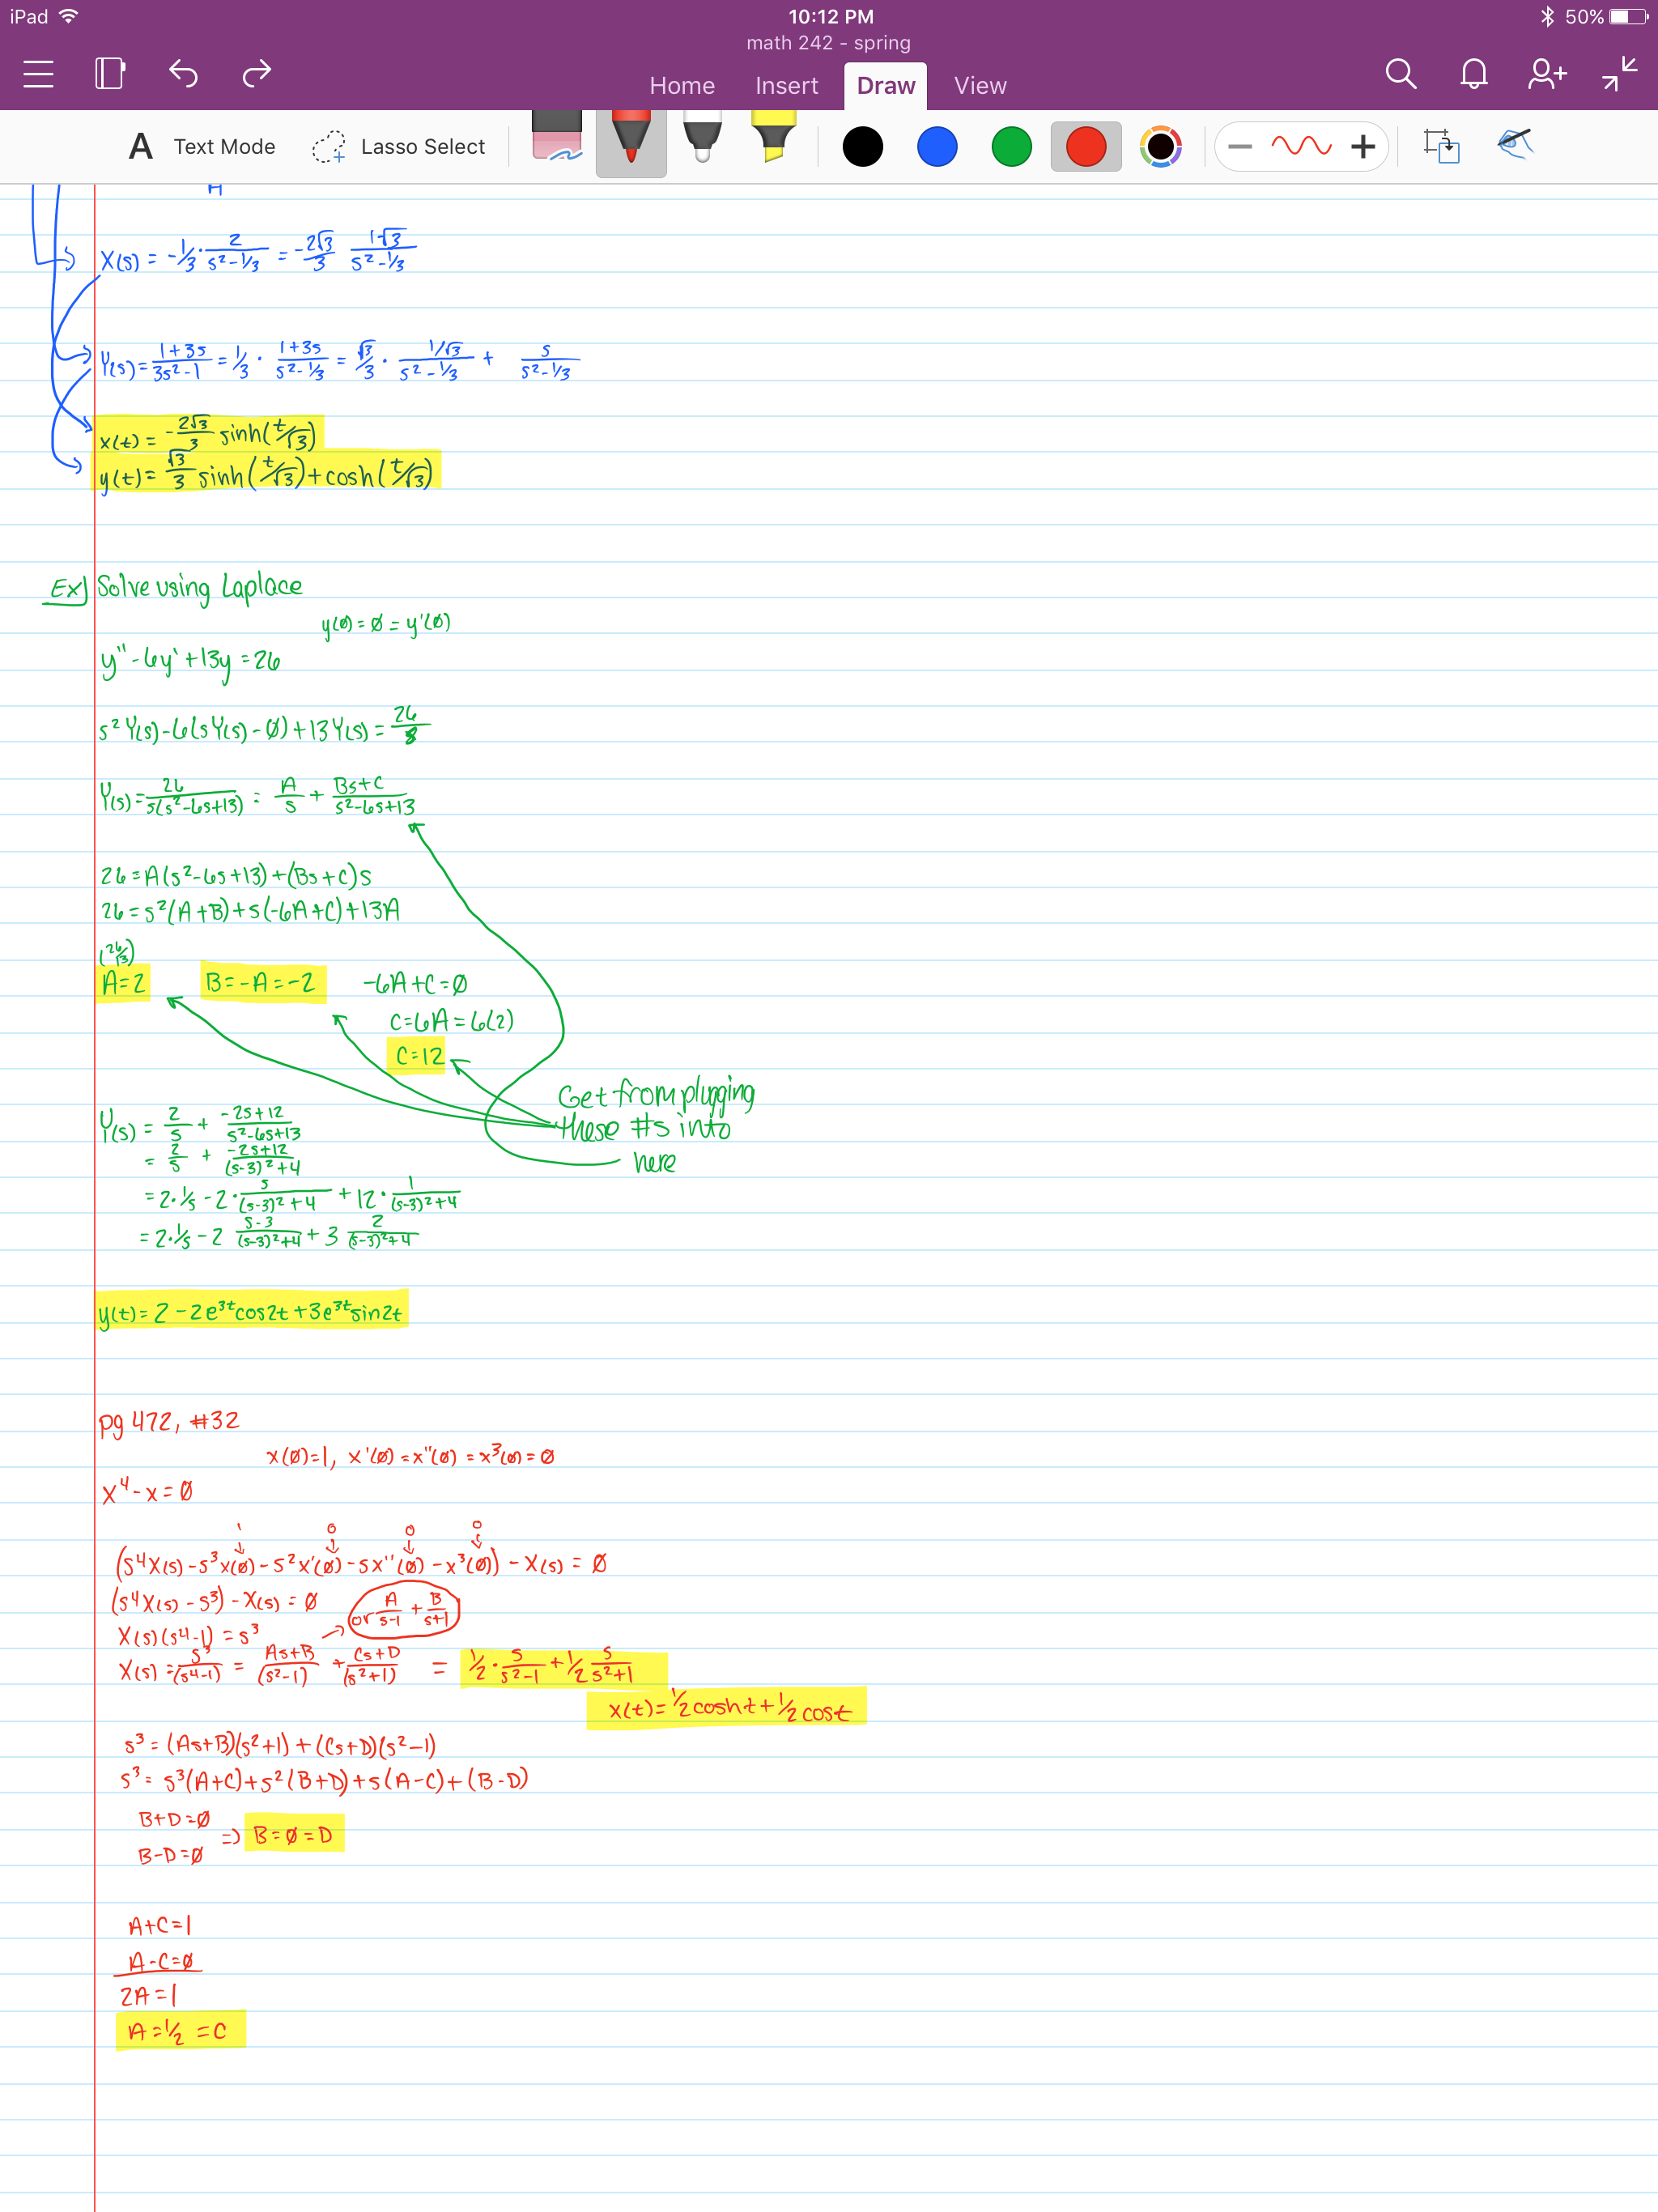 iPad 10:12 PM 50%
math 242 - spring
Home Insert Draw View
A Text Mode Lasso Select
X(s) = -1/3 · 2/(s²-1/3) = -2√3/3 (1/√3)/(s²-1/3)
Y(s) = (1+3s)/(3s²-1) = 1/3 · (1+3s)/(s²-1/3) = √3/3 · (1/√3)/(s²-1/3) + s/(s²-1/3)
x(t) = -2√3/3 sinh(t/√3)
y(t) = √3/3 sinh(t/√3) + cosh(t/√3)
Ex) Solve using Laplace
y(0) = 0 = y'(0)
y'' - 6y' + 13y = 26
s²Y(s) - 6(sY(s) - 0) + 13Y(s) = 26/s
Y(s) = 26/(s(s²-6s+13)) = A/s + (Bs+C)/(s²-6s+13)
26 = A(s²-6s+13) + (Bs+C)s
26 = s²(A+B) + s(-6A+C) + 13A
(26/13)
A=2 B=-A=-2 -6A+C=0
C=6A=6(2)
C=12
Get from plugging
these #s into
here
Y(s) = 2/s + (-2s+12)/(s²-6s+13)
= 2/s + (-2s+12)/((s-3)²+4)
= 2·1/s - 2·s/((s-3)²+4) + 12·1/((s-3)²+4)
= 2·1/s - 2 (s-3)/((s-3)²+4) + 3 2/((s-3)²+4)
y(t) = 2 - 2e³ᵗcos2t + 3e³ᵗsin2t
pg 472, #32
x(0)=1, x'(0) = x''(0) = x³(0) = 0
x⁴ - x = 0
1 0 0 0
(s⁴X(s) - s³x(0) - s²x'(0) - sx''(0) - x³(0)) - X(s) = 0
(s⁴X(s) - s³) - X(s) = 0
or A/(s-1) + B/(s+1)
X(s)(s⁴-1) = s³
X(s) = s³/(s⁴-1) = (As+B)/(s²-1) + (Cs+D)/(s²+1) = 1/2 · s/(s²-1) + 1/2 s/(s²+1)
x(t) = 1/2 cosht + 1/2 cost
s³ = (As+B)(s²+1) + (Cs+D)(s²-1)
s³ = s³(A+C) + s²(B+D) + s(A-C) + (B-D)
B+D=0
=> B=0=D
B-D=0
A+C=1
A-C=0
2A=1
A=1/2=C